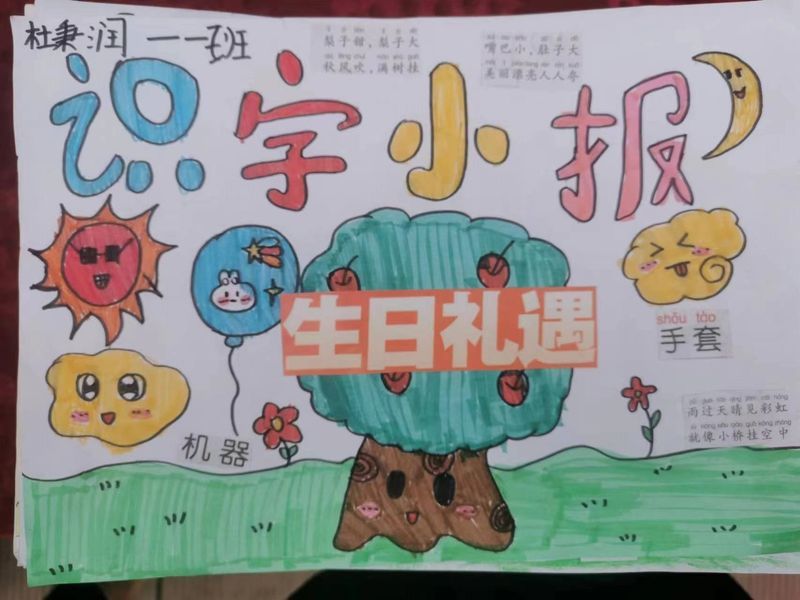 杜秉润 一一班
梨子甜,梨子大
秋风吹,满树挂
嘴巴小,肚子大
美丽漂亮人人夸
识字小报
生日礼遇
shǒu tào
手套
机器
雨过天晴见彩虹
就像小桥挂空中